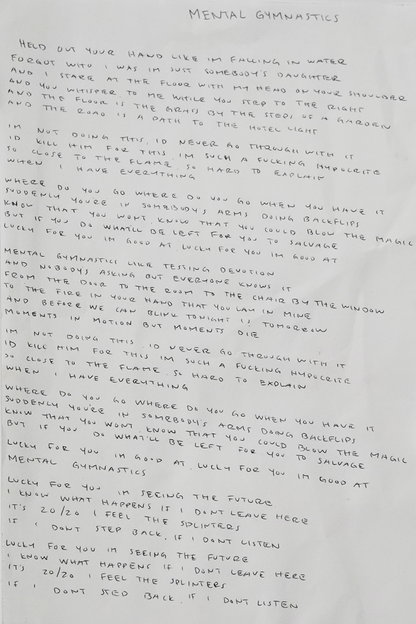 MENTAL GYMNASTICS
HELD OUT YOUR HAND LIKE IM FALLING IN WATER
FORGOT WHO I WAS IM JUST SOMEBODY'S DAUGHTER
AND I STARE AT THE FLOOR WITH MY HEAD ON YOUR SHOULDER
AND YOU WHISPER TO ME WHILE YOU STEP TO THE RIGHT
AND THE FLOOR IS THE GRASS BY THE STEPS OF A GARDEN
AND THE ROAD IS A PATH TO THE HOTEL LIGHT
IM NOT DOING THIS, ID NEVER GO THROUGH WITH IT
ID KILL HIM FOR THIS IM SUCH A FUCKING HYPOCRITE
SO CLOSE TO THE FLAME, SO HARD TO EXPLAIN
WHEN I HAVE EVERYTHING
WHERE DO YOU GO WHERE DO YOU GO WHEN YOU HAVE IT
SUDDENLY YOU'RE IN SOMEBODY'S ARMS DOING BACKFLIPS
KNOW THAT YOU WON'T KNOW THAT YOU COULD BLOW THE MAGIC
BUT IF YOU DO WHAT'LL BE LEFT FOR YOU TO SALVAGE
LUCKY FOR YOU IM GOOD AT LUCKY FOR YOU IM GOOD AT
MENTAL GYMNASTICS LIKE TESTING DEVOTION
AND NOBODYS ASKING BUT EVERYONE KNOWS IT
FROM THE DOOR TO THE ROOM TO THE CHAIR BY THE WINDOW
TO THE FIRE IN YOUR HAND THAT YOU LAY IN MINE
AND BEFORE WE CAN BLINK TONIGHT IS TOMORROW
MOMENTS IN MOTION BUT MOMENTS DIE
IM NOT DOING THIS, ID NEVER GO THROUGH WITH IT
ID KILL HIM FOR THIS IM SUCH A FUCKING HYPOCRITE
SO CLOSE TO THE FLAME, SO HARD TO EXPLAIN
WHEN I HAVE EVERYTHING
WHERE DO YOU GO WHERE DO YOU GO WHEN YOU HAVE IT
SUDDENLY YOU'RE IN SOMEBODY'S ARMS DOING BACKFLIPS
KNOW THAT YOU WONT, KNOW THAT YOU COULD BLOW THE MAGIC
BUT IF YOU DO WHAT'LL BE LEFT FOR YOU TO SALVAGE
LUCKY FOR YOU IM GOOD AT, LUCKY FOR YOU IM GOOD AT
MENTAL GYMNASTICS
LUCKY FOR YOU IM SEEING THE FUTURE
I KNOW WHAT HAPPENS IF I DONT LEAVE HERE
IT'S 20/20 I FEEL THE SPLINTERS
IF I DONT STEP BACK, IF I DONT LISTEN
LUCKY FOR YOU IM SEEING THE FUTURE
I KNOW WHAT HAPPENS IF I DONT LEAVE HERE
ITS 20/20 I FEEL THE SPLINTERS
IF I DONT STEP BACK, IF I DONT LISTEN